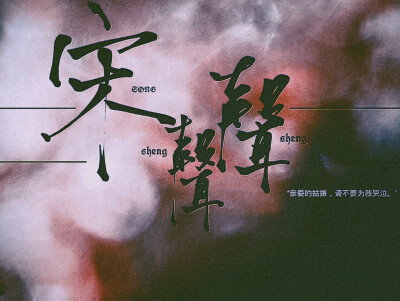 宋
SONG
聲
sheng
聲
sheng
“亲爱的姑娘，请不要为我哭泣。”